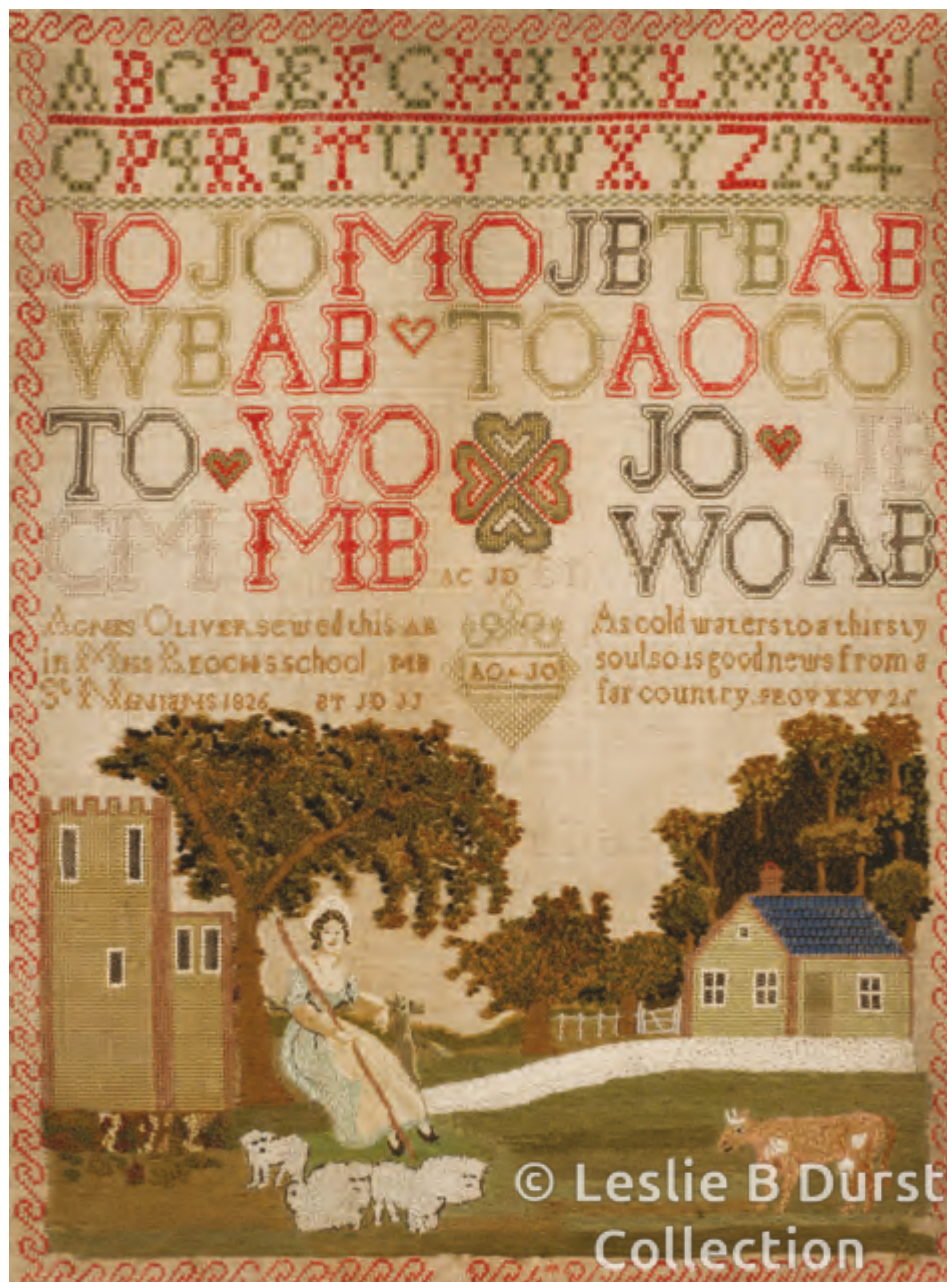 A B C D E F G H I J K L M N 1
O P Q R S T U V W X Y Z 2 3 4
JO JO MO JB TB AB
WB AB TO AO CO
TO WO JO JB
CM MB WO AB
AC JD
AGNES OLIVER sewed this AR
in MISS school MB
St NINIANS 1826 BT JD JJ
AO JO
As cold waters to a thirsty
soul so is good news from a
far country. PROV XXV 25
© Leslie B Durst
Collection